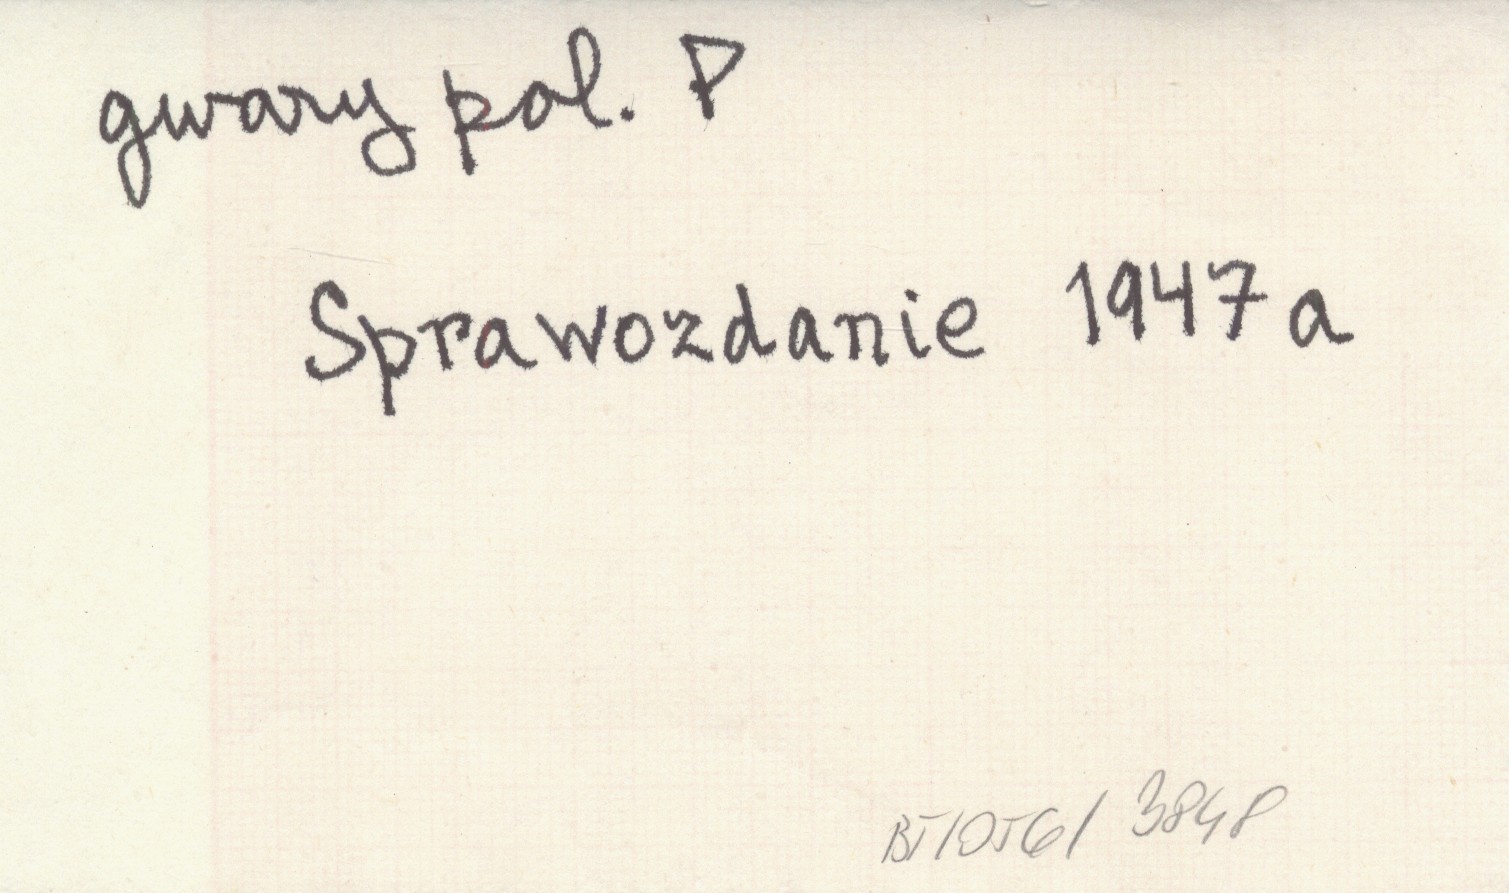 gwary pol. P
Sprawozdanie 1947a
BJ/OJG/ 3848